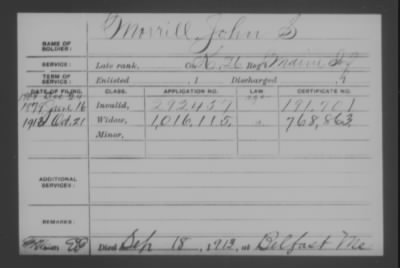 NAME OF SOLDIER: Morrill, John S
SERVICE: Late rank, Co. K, 26 Reg't Maine Inf
TERM OF SERVICE: Enlisted , 1 Discharged , 1
DATE OF FILING. CLASS. APPLICATION NO. LAW CERTIFICATE NO.
1879 June 16 Invalid, 292457 191,701
1913 Oct. 21 Widow, 1,016,115 " 768,863
Minor,
ADDITIONAL SERVICES:
REMARKS:
Died Sep 18, 1913, at Belfast Me